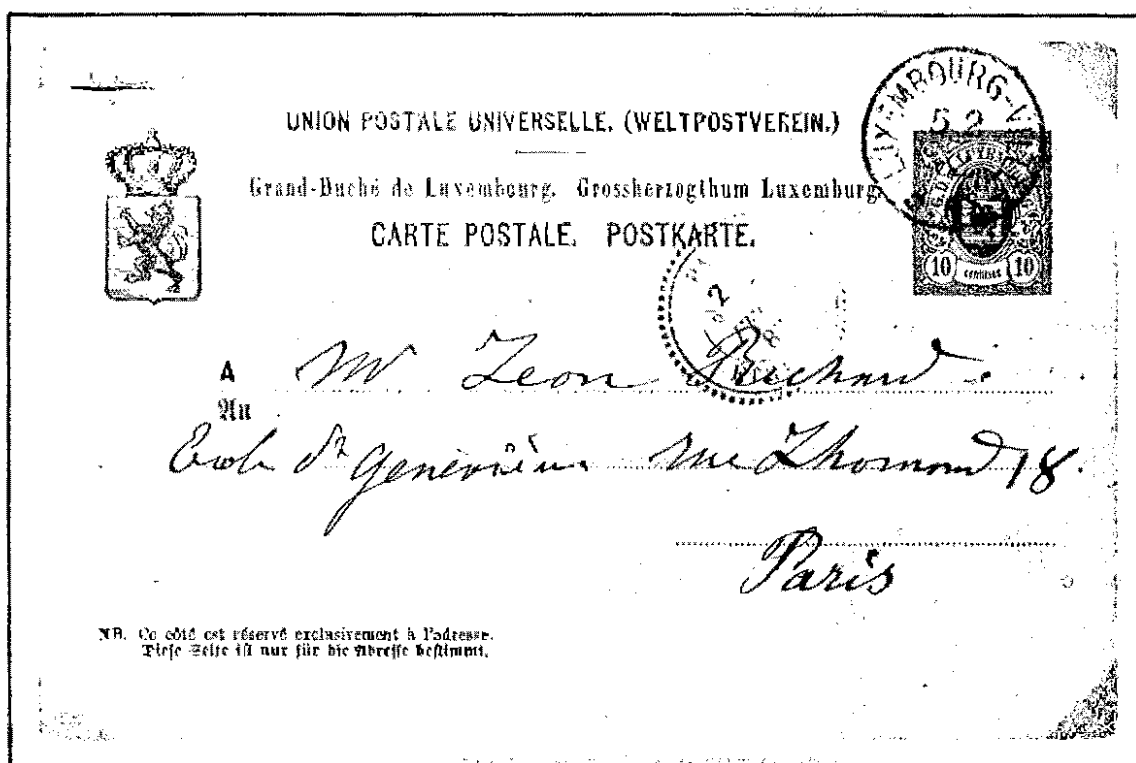 UNION POSTALE UNIVERSELLE. (WELTPOSTVEREIN.)
Grand-Duché de Luxembourg. Grossherzogthum Luxemburg.
CARTE POSTALE. POSTKARTE.
LUXEMBOURG-V
5 2
10 centimes 10
A Mr Leon Richard
An
Ecole Ste Geneviève rue Lhomond 18.
Paris
NB. Ce côté est réservé exclusivement à l'adresse.
Diese Seite ist nur für die Adresse bestimmt.